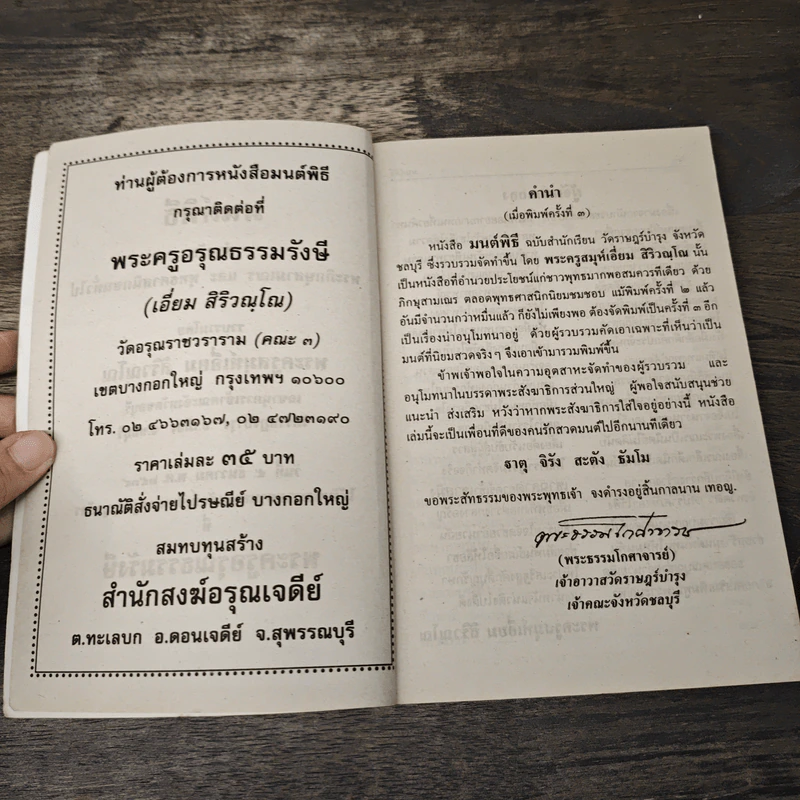 ท่านผู้ต้องการหนังสือมนต์พิธี
กรุณาติดต่อที่
พระครูอรุณธรรมรังษี
(เอี่ยม สิริวณฺโณ)
วัดอรุณราชวราราม (คณะ ๓)
เขตบางกอกใหญ่ กรุงเทพฯ ๑๐๖๐๐
โทร. ๐๒ ๔๖๖๓๑๖๗, ๐๒ ๔๗๒๓๑๙๐
ราคาเล่มละ ๓๕ บาท
ธนาณัติสั่งจ่ายไปรษณีย์ บางกอกใหญ่
สมทบทุนสร้าง
สำนักสงฆ์อรุณเจดีย์
ต.ทะเลบก อ.ดอนเจดีย์ จ.สุพรรณบุรี
คำนำ
(เมื่อพิมพ์ครั้งที่ ๓)
หนังสือ มนต์พิธี ฉบับสำนักเรียน วัดราษฎร์บำรุง จังหวัด
ชลบุรี ซึ่งรวบรวมจัดทำขึ้น โดย พระครูสมุห์เอี่ยม สิริวณฺโณ นั้น
เป็นหนังสือที่อำนวยประโยชน์แก่ชาวพุทธมากพอสมควรทีเดียว ด้วย
ภิกษุสามเณร ตลอดพุทธศาสนิกนิยมชมชอบ แม้พิมพ์ครั้งที่ ๒ แล้ว
อันมีจำนวนกว่าหมื่นแล้ว ก็ยังไม่เพียงพอ ต้องจัดพิมพ์เป็นครั้งที่ ๓ อีก
เป็นเรื่องน่าอนุโมทนาอยู่ ด้วยผู้รวบรวมคัดเอาเฉพาะที่เห็นว่าเป็น
มนต์ที่นิยมสวดจริงๆ จึงเอาเข้ามารวมพิมพ์ขึ้น
ข้าพเจ้าพอใจในความอุตสาหะจัดทำของผู้รวบรวม และ
อนุโมทนาในบรรดาพระสังฆาธิการส่วนใหญ่ ผู้พอใจสนับสนุนช่วย
แนะนำ ส่งเสริม หวังว่าหากพระสังฆาธิการใส่ใจอยู่อย่างนี้ หนังสือ
เล่มนี้จะเป็นเพื่อนที่ดีของคนรักสวดมนต์ไปอีกนานทีเดียว
ธาตุ จิรัง สะตัง ธัมโม
ขอพระสัทธรรมของพระพุทธเจ้า จงดำรงอยู่สิ้นกาลนาน เทอญ.
พระธรรมโกศาจารย์
(พระธรรมโกศาจารย์)
เจ้าอาวาสวัดราษฎร์บำรุง
เจ้าคณะจังหวัดชลบุรี